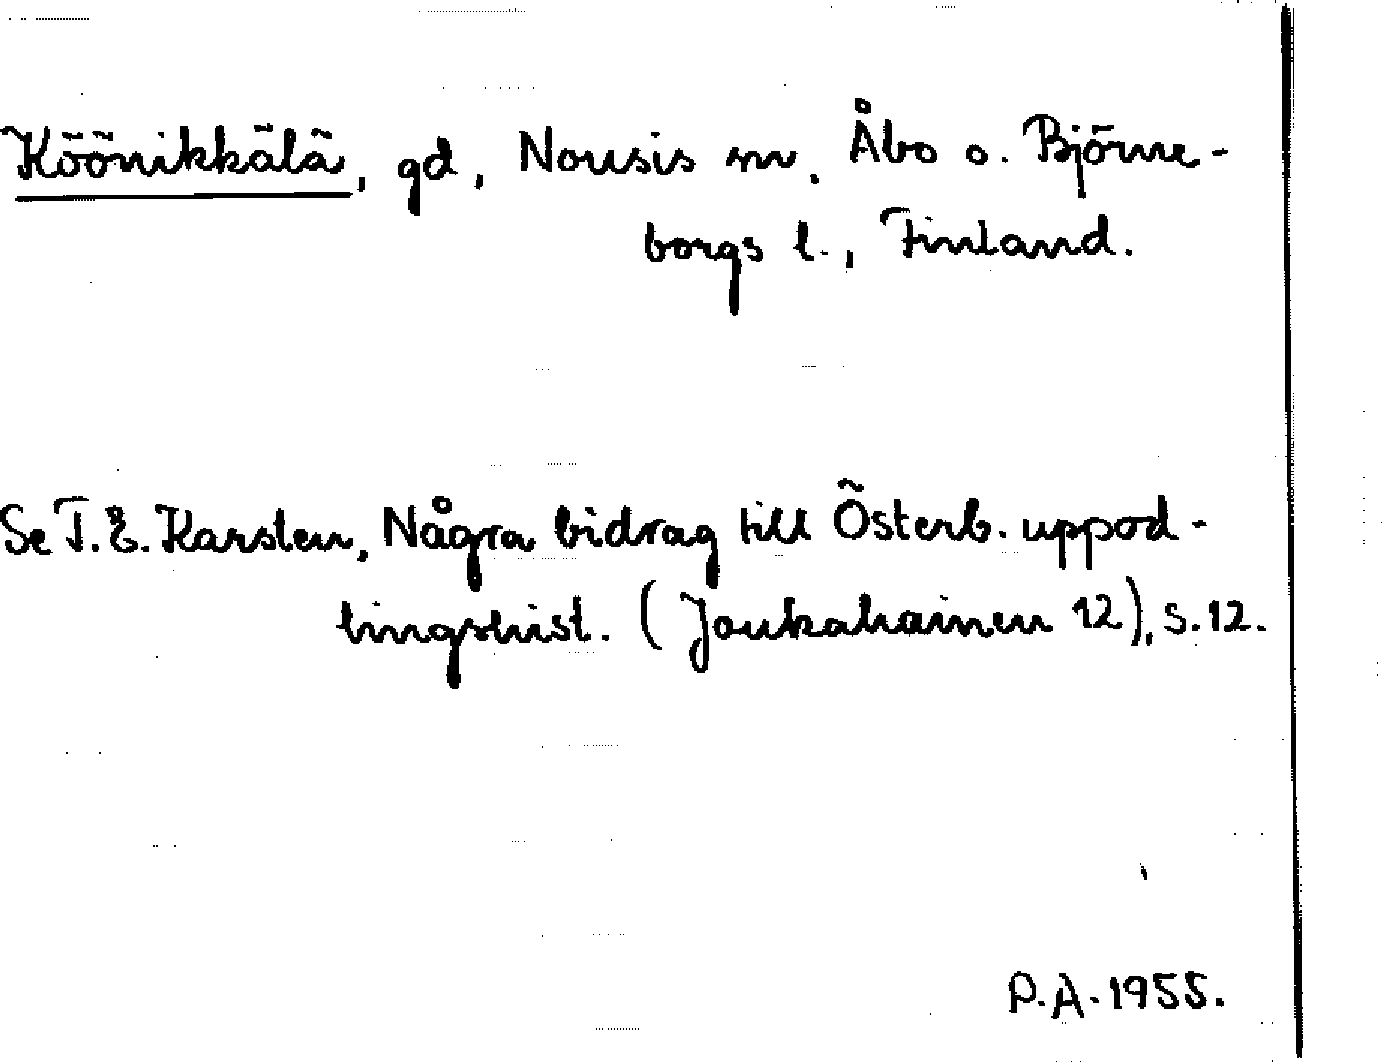 Köönikkälä, gd, Nousis sn. Åbo o. Björne-
borgs l., Finland.
Se T. E. Karsten, Några bidrag till Österb. uppod-
lingshist. (Joukahainen 12), s. 12.
P.A. 1955.